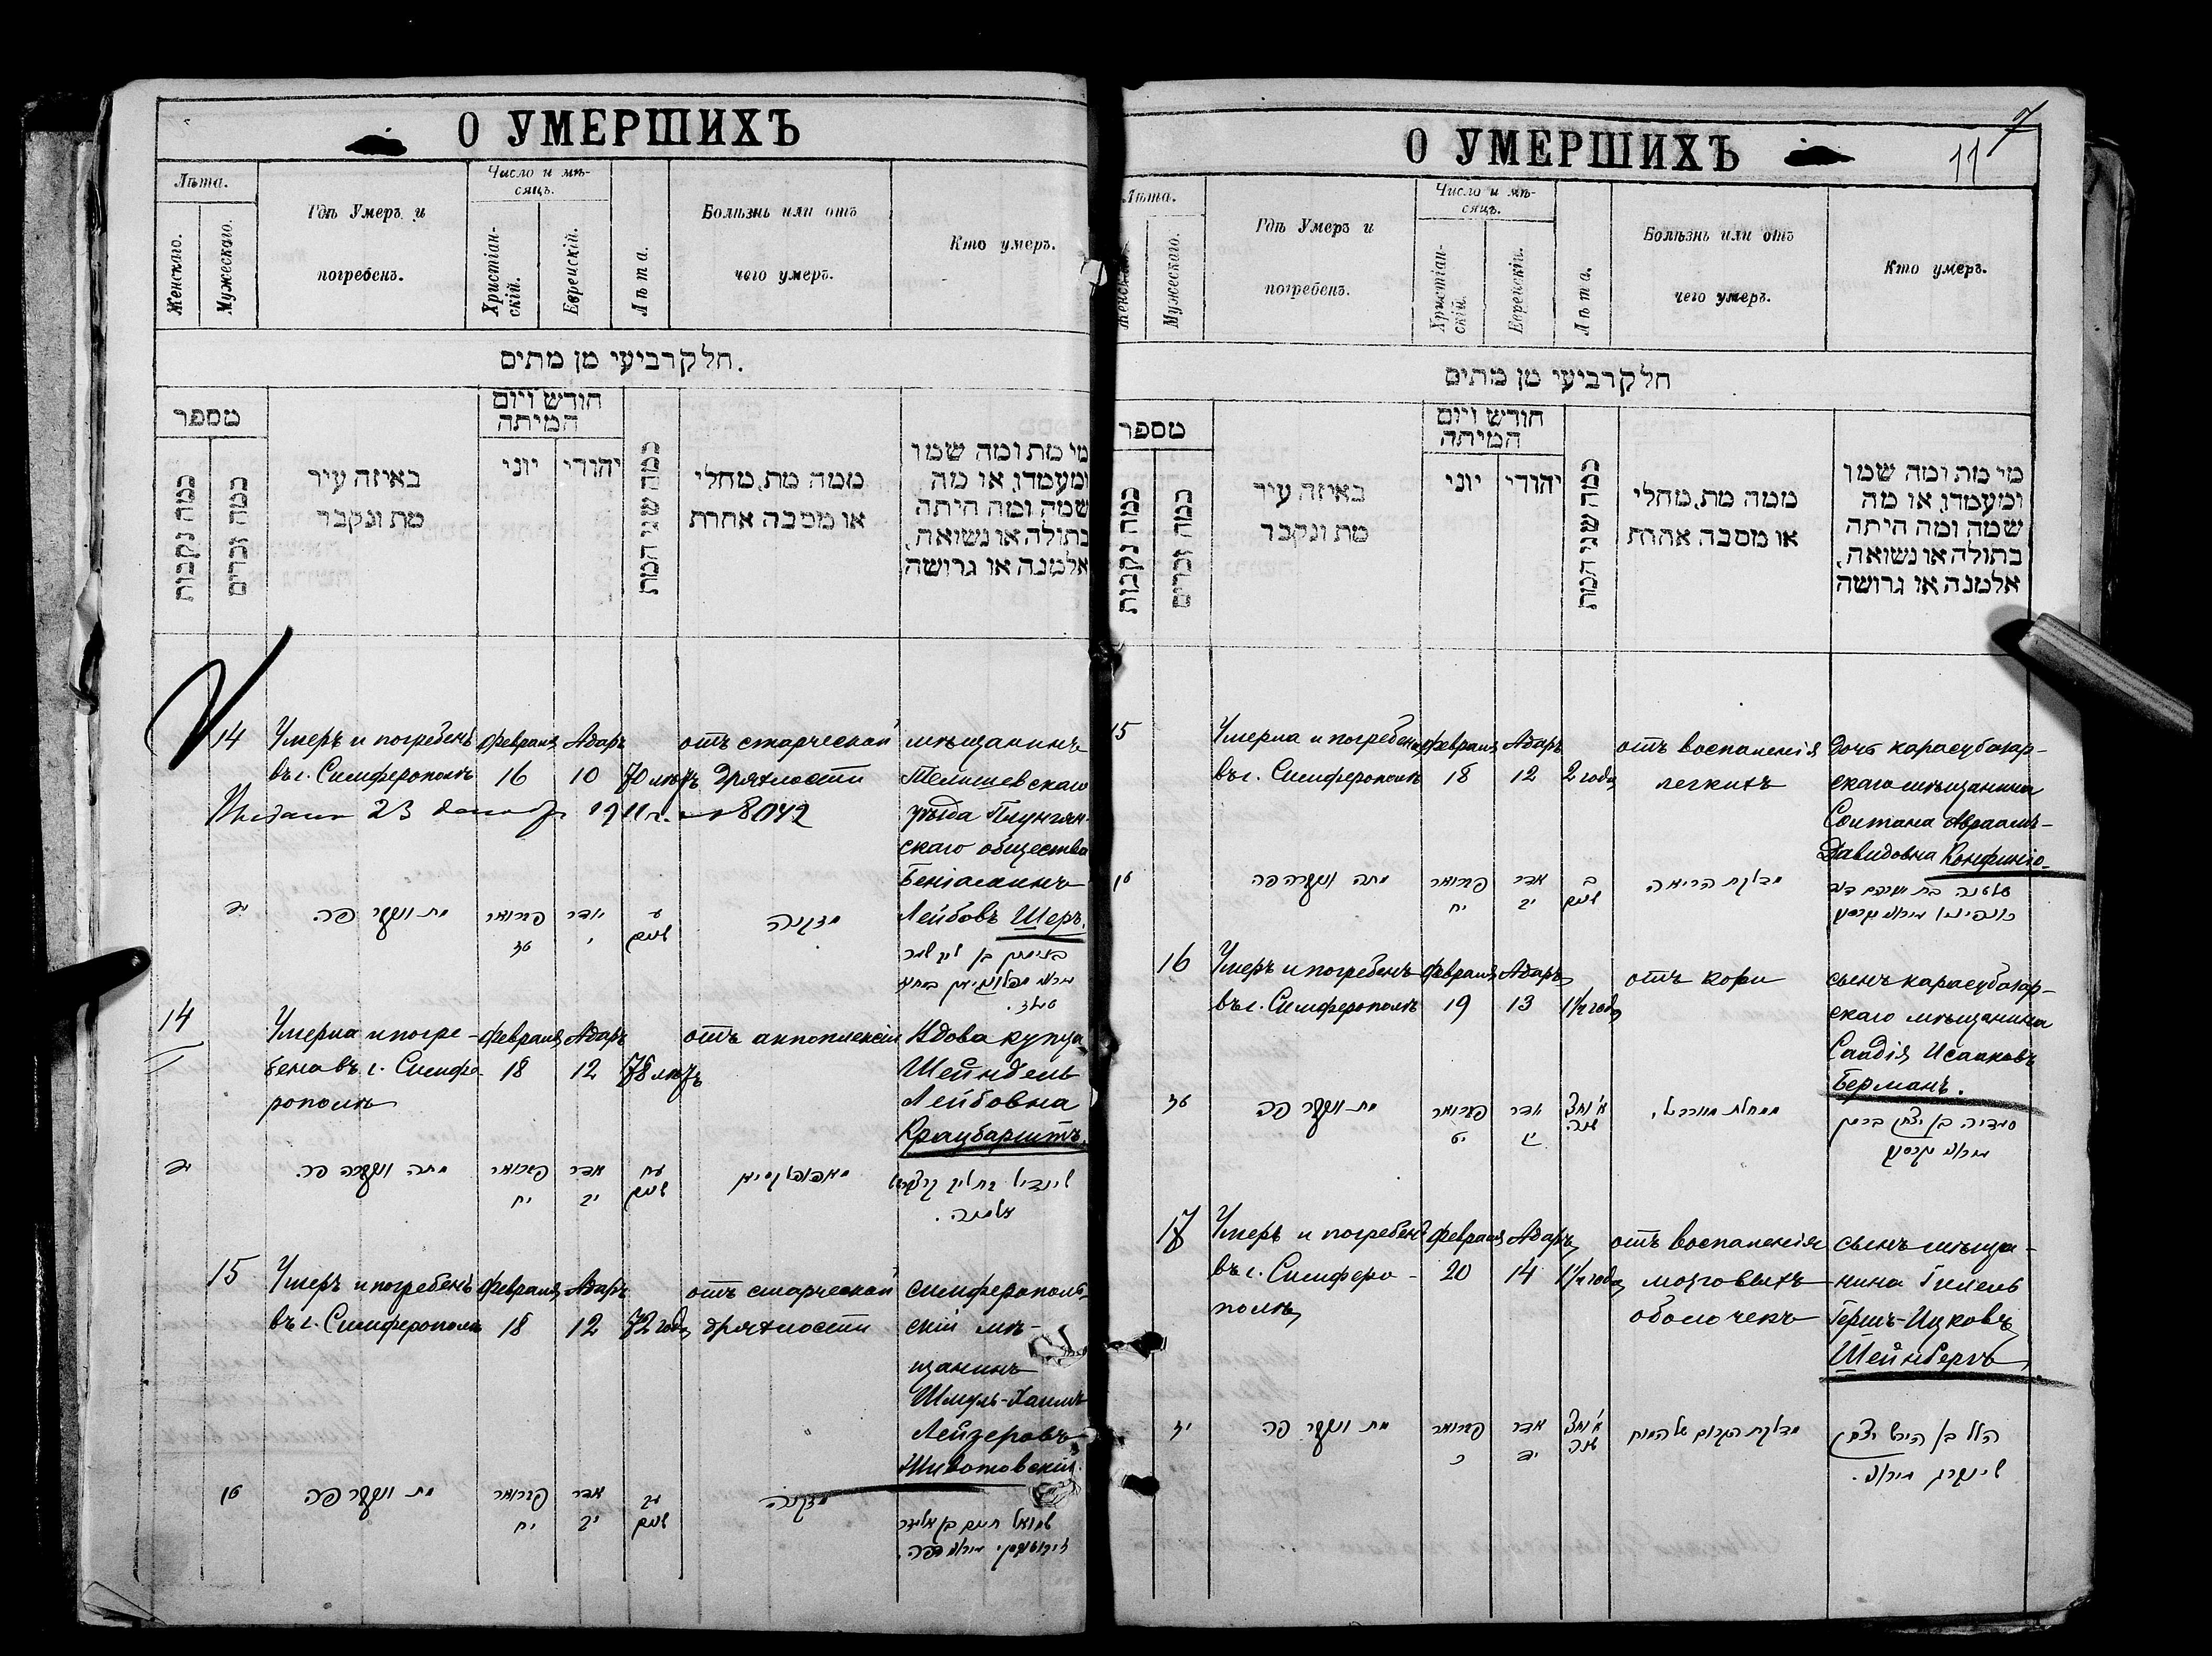 О УМЕРШИХЪ
Лѣта.
Женскаго.
Мужескаго.
Гдѣ Умеръ и
погребенъ.
Число и мѣ-
сяцъ.
Христіан-
скій.
Еврейскій.
Лѣта.
Болѣзнь или отъ
чего умеръ.
Кто умеръ.
חלק רביעי מן מתים.
מספר
כמה נקבות
כמה זכרים
באיזה עיר
מת ונקבר
חודש ויום
המיתה
יוני
יהודי
כמה שני המת
ממה מת, מחלי
או מסבה אחרת
מי מת ומה שמו
ומעמדו, או מה
שמה ומה היתה
בתולה או נשואה,
אלמנה או גרושה
14 Умеръ и погребенъ Февраля Адаръ отъ старческой мѣщанинъ
въ г. Симферополѣ 16 10 70 лѣтъ дряхлости Тельшевскаго
23 1911 г. № 8042 уѣзда Плунгян-
скаго общества
Беніаминъ
Лейбовъ Шеръ.
יד מת ונקבר פה. פברואר אדר ע מזקנה
טז י שנים
בנימין בן ליב שער
14 Умерла и погре- Февраля Адаръ отъ аппоплексіи Вдова купца
бена въ г. Симфе- 18 12 78 лѣтъ Шейндель
рополѣ Лейбовна
Краубаритъ.
יד מתה ונקברה פה. פברואר אדר עח מאפופלקסיען
יח יב שנים
אלמנה.
15 Умеръ и погребенъ Февраля Адаръ отъ старческой симферополь-
въ г. Симферополѣ 18 12 72 года дряхлости скій мѣ-
щанинъ
Шмуль-Хаимъ
Лейзеровъ
Животовскій.
טו מת ונקבר פה פברואר אדר עב מזקנה
יח יב שנים
שמואל חיים בן אליעזר
О УМЕРШИХЪ
7
11
Лѣта.
Женскаго.
Мужескаго.
Гдѣ Умеръ и
погребенъ.
Число и мѣ-
сяцъ.
Христіан-
скій.
Еврейскій.
Лѣта.
Болѣзнь или отъ
чего умеръ.
Кто умеръ.
חלק רביעי מן מתים
מספר
כמה נקבות
כמה זכרים
באיזה עיר
מת ונקבר
חודש ויום
המיתה
יוני
יהודי
כמה שני המת
ממה מת, מחלי
או מסבה אחרת
מי מת ומה שמו
ומעמדו, או מה
שמה ומה היתה
בתולה או נשואה,
אלמנה או גרושה
15 Умерла и погребена Февраля Адаръ отъ воспаленія дочь карасубазар-
въ г. Симферополѣ 18 12 2 года легкихъ скаго мѣщанина
Султана Авраамъ-
Давидовна Конфино.
טו מתה ונקברה פה פברואר אדר ב מדלקת הריאה
יח יב שנים
16 Умеръ и погребенъ Февраля Адаръ отъ кори сынъ карасубазар-
въ г. Симферополѣ 19 13 1½ года скаго мѣщанина
Саадія Исааковъ
Берманъ.
טז מת ונקבר פה פברואר אדר א׳ וחצי
יט יג שנה
סעדיה בן יצחק ברמן
17 Умеръ и погребенъ Февраля Адаръ отъ воспаленія сынъ мѣща-
въ г. Симферо- 20 14 1½ года мозговыхъ нина Гилель
полѣ оболочекъ Гершъ-Ицковъ
Шейнбергъ.
יז מת ונקבר פה פברואר אדר א׳ וחצי מדלקת הקרום של המוח
כ יד שנה
הלל בן הירש יצחק